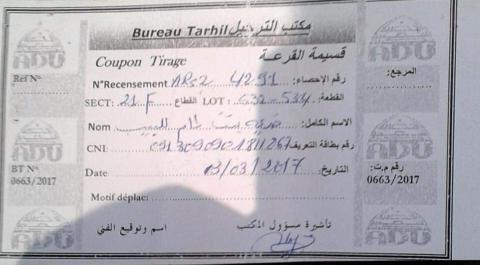 Bureau Tarhil مكتب الترحيل
ADU
ADU
Coupon Tirage قسيمة القرعة
Ref N°
المرجع:
N°Recensement AR-2 4291 رقم الإحصاء:
SECT: 21 F القطاع LOT: 532-534 القطعة:
Nom الاسم الكامل:
CNI: رقم بطاقة التعريف:
BT N°
0663/2017
رقم م.ت:
0663/2017
Date 13/03/2017 التاريخ:
Motif déplac:
اسم وتوقيع الفني
تأشيرة مسؤول المكتب
ADU
ADU